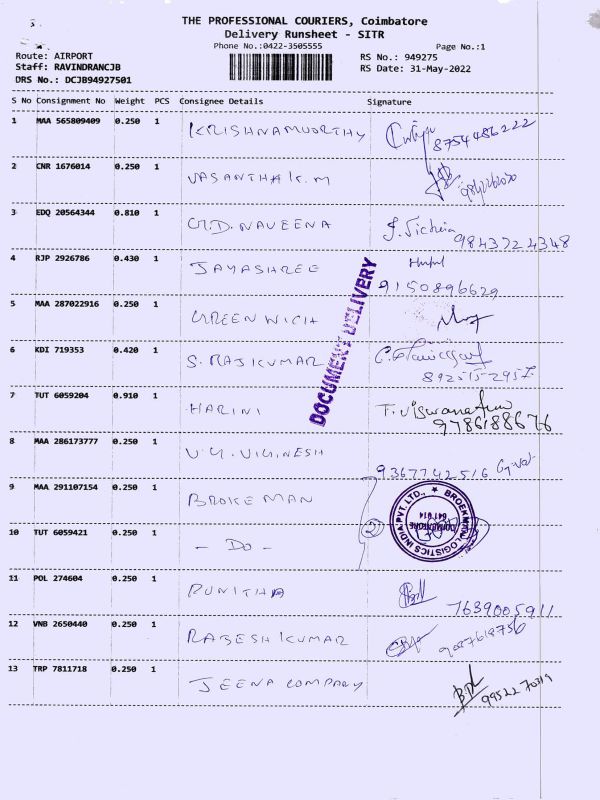 THE PROFESSIONAL COURIERS, Coimbatore
Delivery Runsheet - SITR
Phone No.:0422-3505555 Page No.:1
Route: AIRPORT RS No.: 949275
Staff: RAVINDRANCJB RS Date: 31-May-2022
DRS No.: DCJB94927501
S No Consignment No Weight PCS Consignee Details Signature
1 MAA 565809409 0.250 1 KRISHNAMUORTHY 8754486222
2 CNR 1676014 0.250 1 VASANTHA K.M
3 EDQ 20564344 0.810 1 NAVEENA 9843724348
4 RJP 2926786 0.430 1 JAYASHREE 9150896629
5 MAA 287022916 0.250 1 GREENWICH
6 KDI 719353 0.420 1 S. RAJKUMAR
7 TUT 6059204 0.910 1 HARINI T. Viswanathan 9786188676
8 MAA 286173777 0.250 1 V.G. VIGNESH 9367742516
9 MAA 291107154 0.250 1 BROKEMAN
10 TUT 6059421 0.250 1 - DO -
11 POL 274604 0.250 1 PUNITHA 7639005911
12 VNB 2650440 0.250 1 RAGESH KUMAR
13 TRP 7811718 0.250 1 JEENA COMPANY
DOCUMENT DELIVERY
BROEKMAN LOGISTICS INDIA PVT. LTD.,
COIMBATORE
641 014